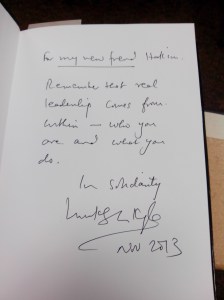 For my new friend
Remember that real
leadership comes from
within – who you
are and what you
do.
In Solidarity
Nov 2013